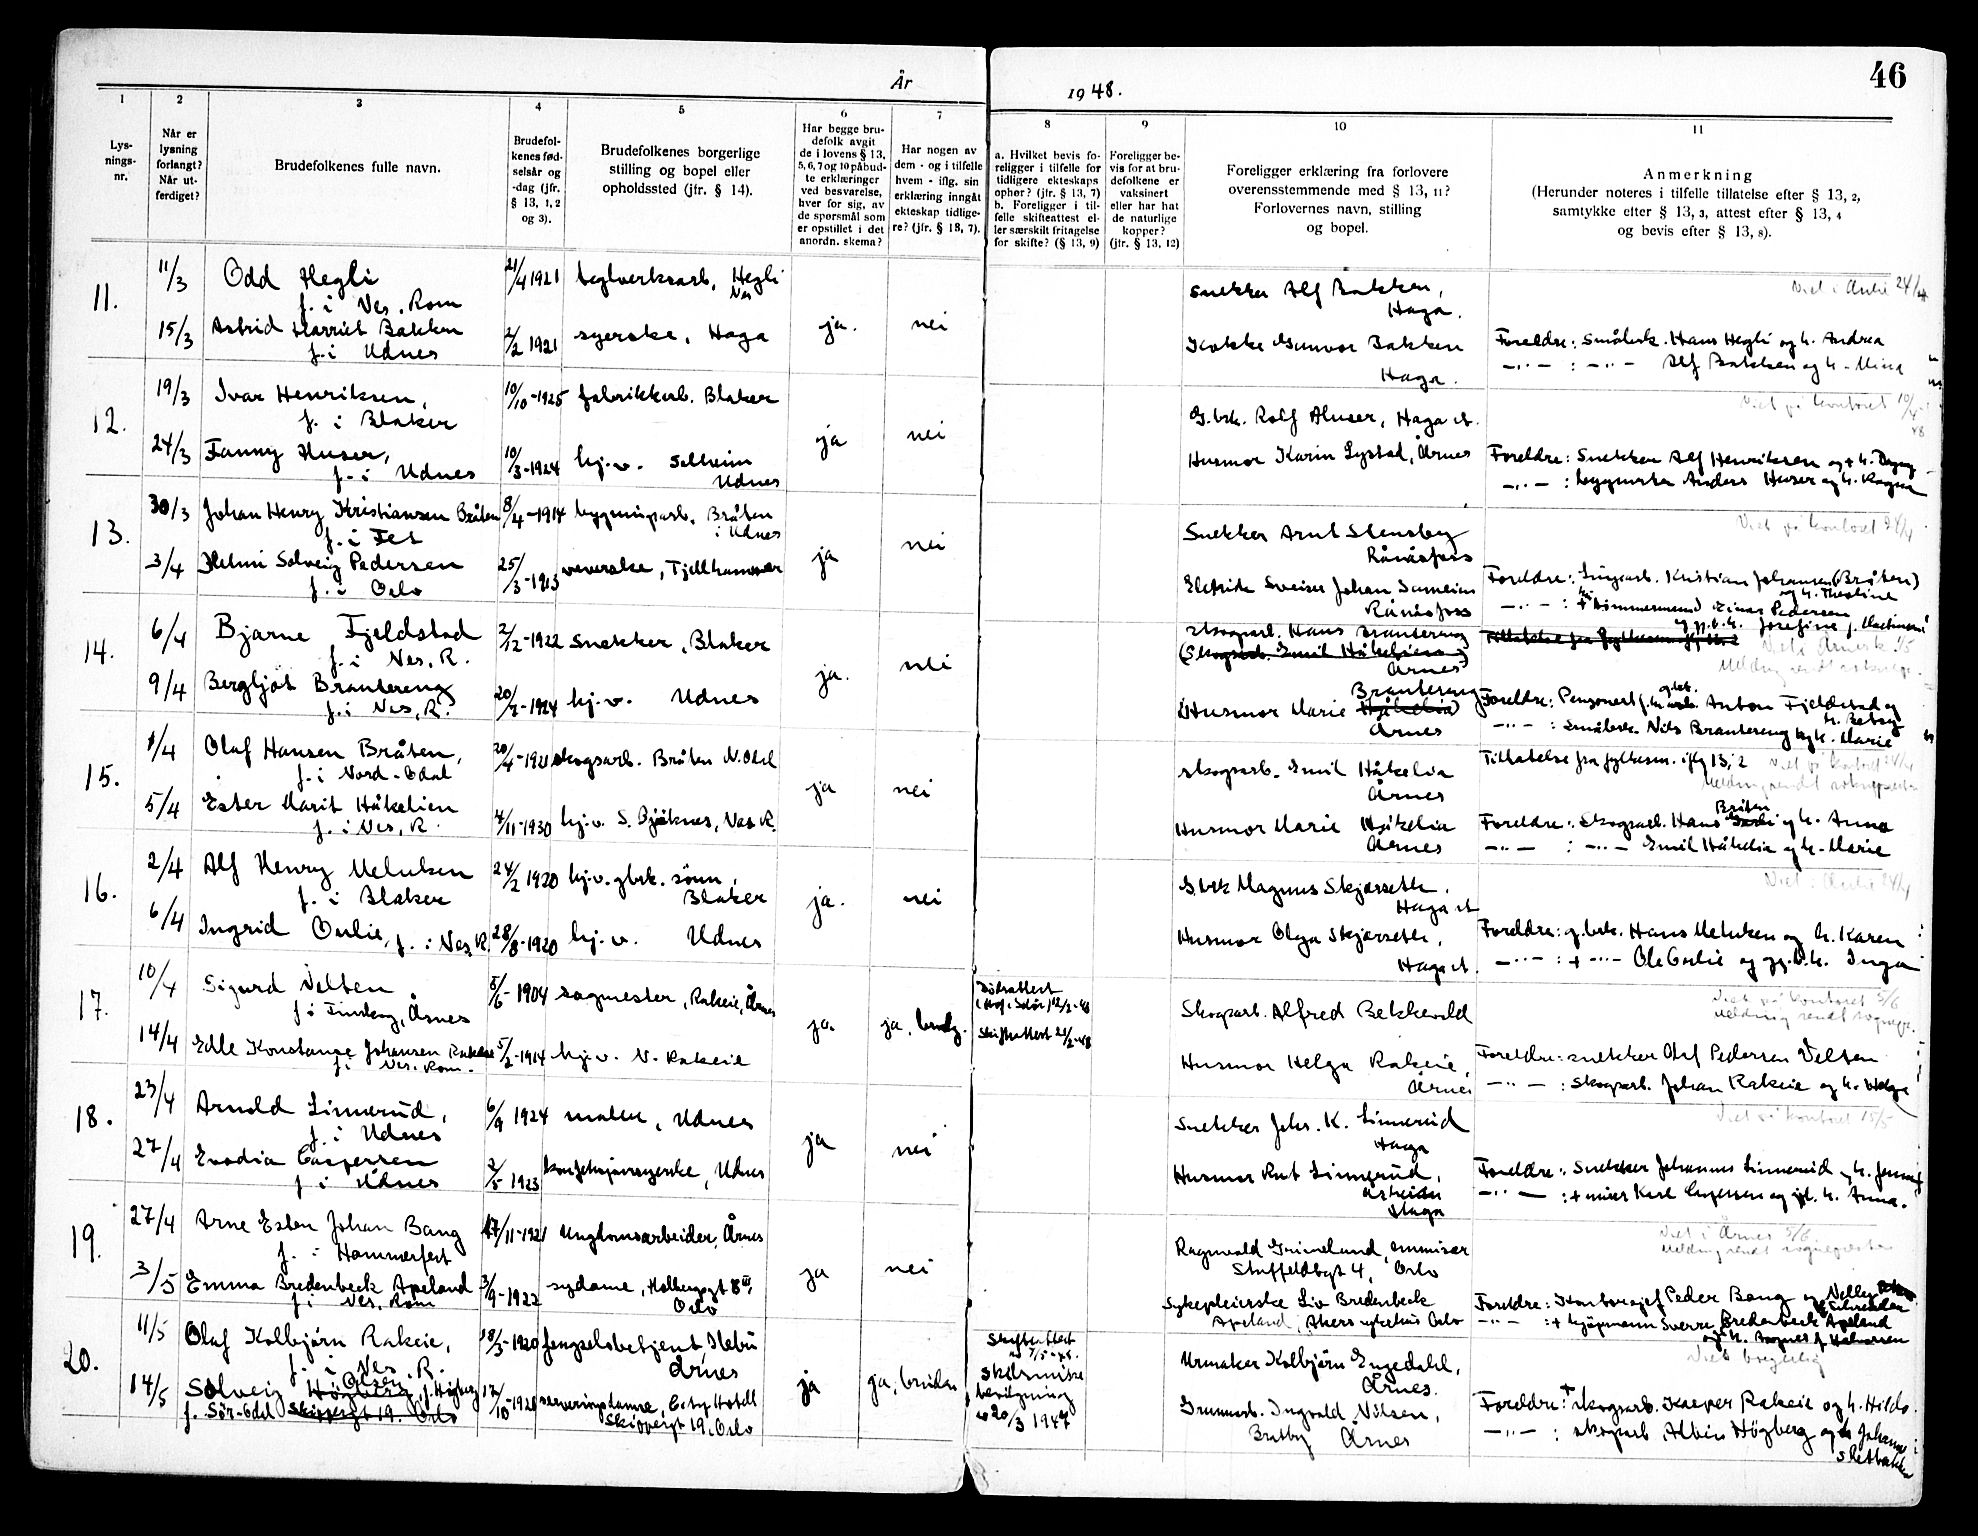 46
År
1948.
1
2
3
4
5
6
7
8
9
10
11
Lys-
nings-
nr.
Når er
lysning
forlangt?
Når ut-
ferdiget?
Brudefolkenes fulle navn.
Brudefol-
kenes fød-
selsår og
-dag (jfr.
§ 13, 1, 2
og 3).
Brudefolkenes borgerlige
stilling og bopel eller
opholdssted (jfr. § 14).
Har begge bru-
defolk avgit
de i lovens § 13,
5, 6, 7 og 10 påbud-
te erklæringer
ved besvarelse,
hver for sig, av
de spørsmål som
er opstillet i det
anordn. skema?
Har nogen av
dem - og i tilfelle
hvem - iflg. sin
erklæring inngåt
ekteskap tidlige-
re? (jfr. § 18, 7).
a. Hvilket bevis fo-
religger i tilfelle for
tidligere ekteskaps
ophør? (jfr. § 13, 7)
b. Foreligger i til-
felle skifteattest el-
ler særskilt fritagelse
for skifte? (§ 13, 9)
Foreligger be-
vis for at bru-
defolkene er
vaksinert
eller har hat
de naturlige
kopper?
(jfr. § 13, 12)
Foreligger erklæring fra forlovere
overensstemmende med § 13, 11?
Forlovernes navn, stilling
og bopel.
Anmerkning
(Herunder noteres i tilfelle tillatelse efter § 13, 2,
samtykke efter § 13, 3, attest efter § 13, 4
og bevis efter § 13, 8).
11.
11/3
Odd Hegli
f. i Nes, Rom
21/4 1921
teglverksarb, Hegli
Nes
15/3
Astrid Harriet Bakken
f. i Udnes
2/2 1921
syerske, Haga
ja.
nei
Snekker Alf Bakken,
Haga.
Kokke Gunvor Bakken
Haga.
Viet i 24/4
Foreldre: Småbrk. Hans Hegli og h. Andrea
-"- : -"- Alf Bakken og h. Mina
12.
19/3
Ivar Henriksen,
f. i Blaker
10/10-1925
fabrikkarb. Blaker
24/3
Fanny Huser,
f. i Udnes
10/3-1924
hj.v. Solheim
Udnes
ja
nei
G.brk. Rolf Huser, Haga st.
Husmor Karin Lystad, Årnes
Viet på kontoret 10/4 48
Foreldre: Snekker Alf Henriksen og h. Dagny
-"- : bygnarb. Anders Huser og h. Ragna
13.
30/3
Johan Henry Kristiansen Bråten
f. i Fet
8/4-1914
bygningsarb. Bråten
i Udnes
3/4
Helmi Solveig Pedersen
f. i Oslo
25/3-1913
veverske, Fjellhamar
ja
nei
Snekker Arnt Stensby
Rånåsfoss
Elektrisk Sveiser Johan
Rånåsfoss
Viet på kontoret 24/4
Foreldre: Kristian Johansen (Bråten)
og h. Theoline
-"- : + tømmermand Einar Pedersen
og gj.l.h. Josefine f. Martinsen
14.
6/4
Bjarne Fjeldstad
f. i Nes, R.
2/2-1922
Snekker, Blaker
9/4
Bergljot Brantereng
f. i Nes, R.
20/2-1924
hj.v. Udnes
ja.
nei
skogsarb. Hans Brantereng
(Skogsarb. Emil Håkelien)
Årnes
Husmor Marie Brantereng
Håkelia
Årnes
Viet i Årnes k. 1/5
Melding sendt
Foreldre: Pensjonert Anton Fjeldstad og
h. Betsy
-"- : Småbrk. Nils Brantereng og h. Marie
15.
1/4
Olaf Hansen Bråten,
f. i Nord-Odal
20/4-1921
skogsarb. Bråten N. Odal
5/4
Ester Marit Håkelien
f. i Nes, R.
4/11-1930
hj.v. S. Bjöknes, Nes R.
ja
nei
skogsarb. Emil Håkelia
Årnes
Husmor Marie Håkelia
Årnes
Tillatelse fra fylkesm. iflg 13, 2
Viet på kontoret 24/4
Melding sendt sognepresten
Foreldre: skogsarb. Hans Bråten og h. Anna
-"- : -"- Emil Håkelia og h. Marie
16.
2/4
Alf Henry Melnken
f. i Blaker
24/2 1920
hj.v. gbrk. sønn,
Blaker
6/4
Ingrid Oulie, f. i Nes, R.
28/8-1920
hj.v. Udnes
ja.
nei
Gbrk Magnus Skjørseth.
Haga st
Husmor Olga Skjørseth,
Haga st.
Viet i 24/4
Foreldre: g.brk. Hans Melnken og h. Karen
-"- : + -"- Ole Oulie og gj.l.h. Inga
17.
10/4
Sigurd Velten
f. i Årnes
5/6-1904
sagmester, Rakeie, Årnes
14/4
Edle Konstanse Johansen Rakeie
f. i Nes, Rom.
5/2-1914
hj.v. N. Rakeie
ja.
ja, brudg.
Dødsattest
Skifteattest 21/2-48
Skogsarb. Alfred Bekkevold
Husmor Helga Rakeie,
Årnes
Viet på kontoret 5/6
Melding sendt sognepr.
Foreldre: snekker Olaf Pedersen Velten
-"- : Skogsarb. Johan Rakeie og h. Helga
18.
23/4
Arnold Linnerud,
f. i Udnes
6/9 1924
maler, Udnes
27/4
Evodia Caspersen
f. i Udnes
2/5 1923
konfeksjonssyerske, Udnes
ja
nei
Snekker Johs. K. Linnerud
Haga
Husmor Rut Linnerud,
Haga
Viet på kontoret 15/5
Foreldre: Snekker Johannes Linnerud og h. Jenny
-"- : + murer Karl Caspersen og gjl. h. Anna.
19.
27/4
Arne Esten Johan Bang
f. i Hammerfest
17/11-1921
Ungdomsarbeider, Årnes
3/5
Emma Bredenbeck Apeland
f. i Nes, Rom
3/9-1922
sydame, Holbergsgt 8 III,
Oslo
ja
nei
Ragnvald Grimelund, emmisær
Stuffeldtsgt 4, Oslo
Sykepleierske Liv Bredenbeck
Apeland, Akers sykehus Oslo
Viet i Årnes 5/6
Melding sendt sognepresten
Foreldre: Kontorsjef Peder Bang og Nelly
f. Schrøder
-"- : + kjøpmann Sverre Bredenbeck Apeland
og h. Ragna f. Halvorsen
20.
11/5
Olaf Kolbjørn Rakeie,
f. i Nes, R.
18/5-1920
fengselsbetjent, Ilebu
Årnes
14/5
Solveig Olsen, f. Högberg
f. Sør-Odal Skippergt 19. Oslo
12/10-1920
serveringsdame, City Hotell
Skippergt 19, Oslo
ja
ja, bruden
Skifteattest
7/5-48.
skilsmisse
bevilgning
20/3 1947
Urmaker Kolbjørn Engedahl,
Årnes.
Grunnarb. Ingvald Nilsen,
Bratby Årnes
Viet borgerlig
Foreldre: + skogsarb. Kasper Rakeie og h. Hilda
-"- : skogsarb. Albin Högberg og h. Johanne
Sletbakken